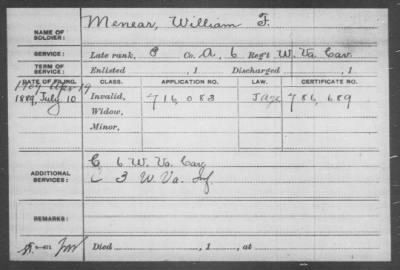 NAME OF SOLDIER: Menear, William F.
SERVICE: Late rank, P Co. A, 6 Reg't W. Va. Cav.
TERM OF SERVICE: Enlisted , 1 Discharged , 1
DATE OF FILING. CLASS. APPLICATION NO. LAW. CERTIFICATE NO.
1907 Apr 19
1889, July 10 Invalid, 716,083 786,689
Widow,
Minor,
C 6 W. Va. Cav
ADDITIONAL SERVICES: C 3 W Va. Inf.
REMARKS:
3-431 Died , 1 , at